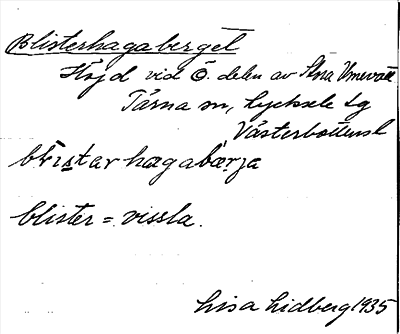 Blisterhagaberget
Höjd vid Ö. delen av Stra Umevatt
Tärna sn, Lycksele lg
Västerbottensl
blistar hagabärja
blister = vissla.
Lisa Lidberg 1935